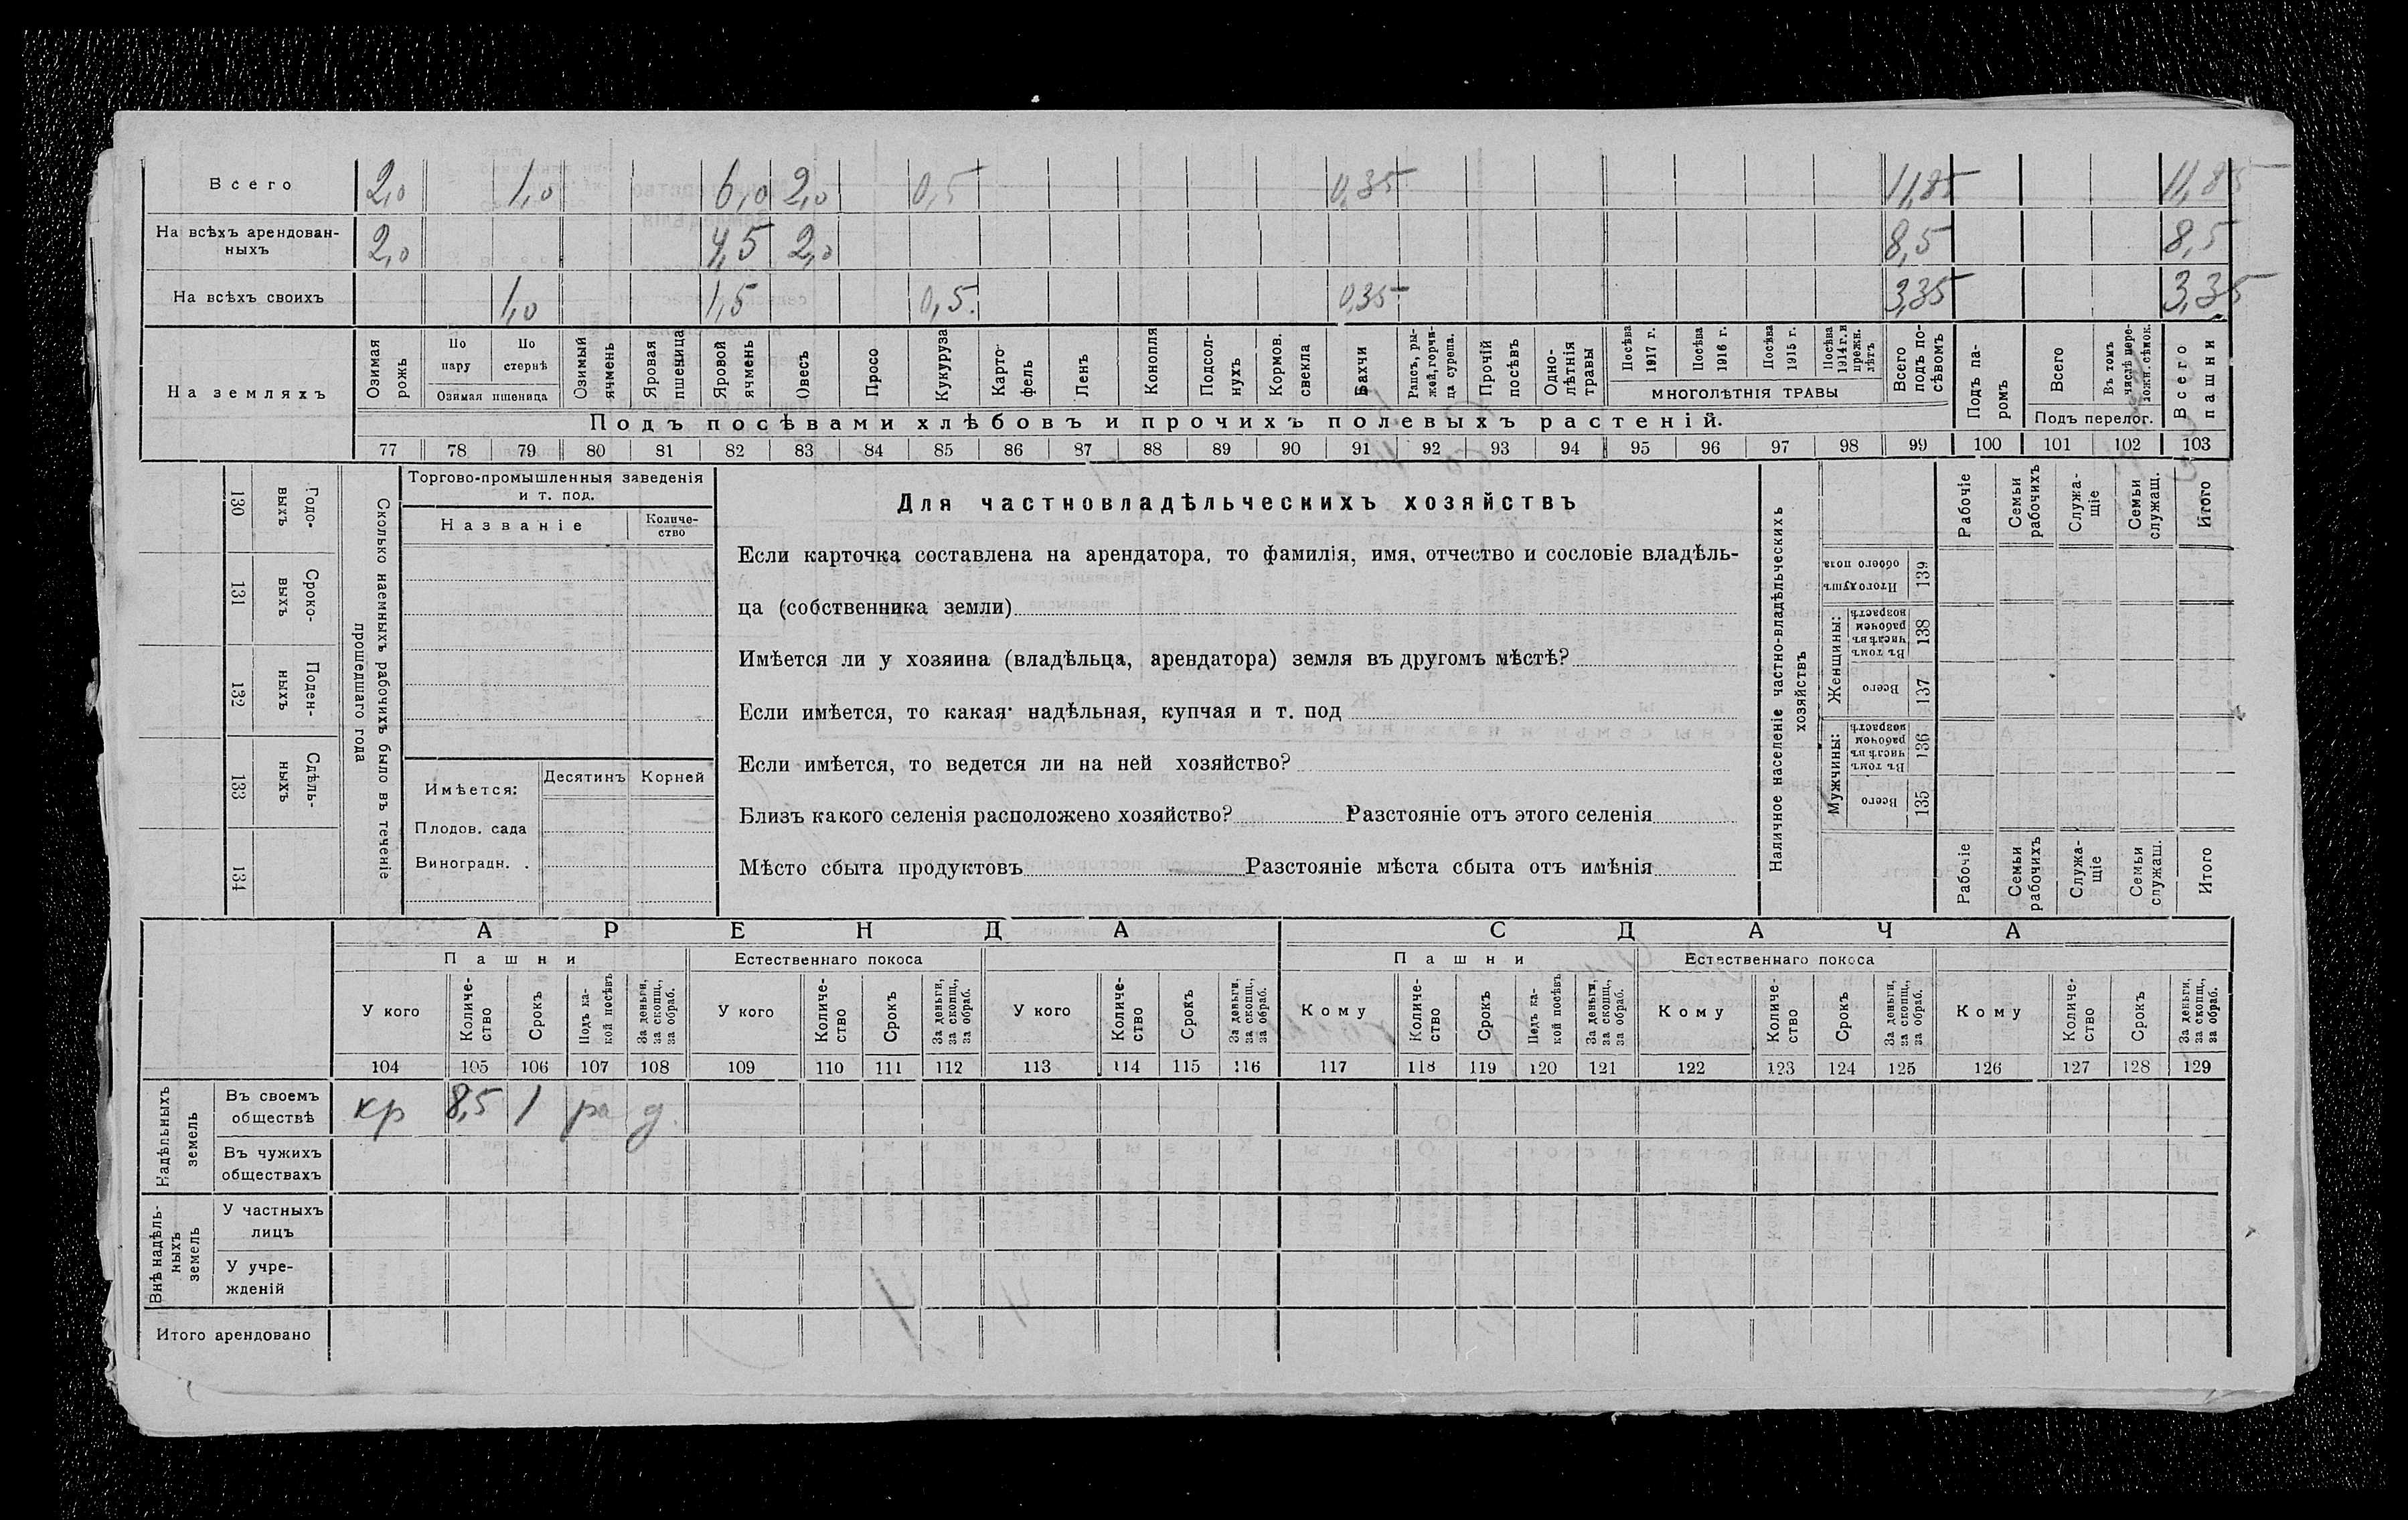 Всего 2,0 1,0 6,0 2,0 0,5 0,35 11,85 11,85
На всѣхъ арендован-
ныхъ 2,0 4,5 2,0 8,5 8,5
На всѣхъ своихъ 1,0 1,5 0,5. 0,35 3,35 3,35
На земляхъ
Озимая рожь
По пару
По стернѣ
Озимая пшеница
Озимый ячмень
Яровая пшеница
Яровой ячмень
Овесъ
Просо
Кукуруза
Карто-
фель
Ленъ
Конопля
Подсол-
нухъ
Кормов.
свекла
Бахчи
Рапсъ, ры-
жей, горчи-
ца сурепа.
Прочій
посѣвъ
Одно-
лѣтнія
травы
Посѣва
1917 г.
Посѣва
1916 г.
Посѣва
1915 г.
Посѣва
1914 г. и
прежн.
лѣтъ
МНОГОЛѢТНІЯ ТРАВЫ
Всего
подъ по-
сѣвомъ
Подъ па-
ромъ
Всего
Въ томъ
числѣ пере-
ложн. сѣнок.
Подъ перелог.
Всего
пашни
Подъ посѣвами хлѣбовъ и прочихъ полевыхъ растеній.
77 78 79 80 81 82 83 84 85 86 87 88 89 90 91 92 93 94 95 96 97 98 99 100 101 102 103
Сколько наемныхъ рабочихъ было въ теченіе
прошедшаго года
Годо-
выхъ
130
Сроко-
выхъ
131
Поден-
ныхъ
132
Сдѣль-
ныхъ
133
134
Торгово-промышленныя заведенія
и т. под.
Названіе
Количе-
ство
Имѣется:
Десятинъ Корней
Плодов. сада
Виноградн. .
Для частновладѣльческихъ хозяйствъ
Если карточка составлена на арендатора, то фамилія, имя, отчество и сословіе владѣль-
ца (собственника земли)
Имѣется ли у хозяина (владѣльца, арендатора) земля въ другомъ мѣстѣ?
Если имѣется, то какая· надѣльная, купчая и т. под
Если имѣется, то ведется ли на ней хозяйство?
Близъ какого селенія расположено хозяйство? Разстояніе отъ этого селенія
Мѣсто сбыта продуктовъ Разстояніе мѣста сбыта отъ имѣнія
Наличное населеніе частно-владѣльческихъ
хозяйствъ
Рабочіе
Семьи
рабочихъ
Служа-
щіе
Семьи
служащ.
Итого
Итого душъ
обоего пола
139
Женщины:
Въ томъ
числѣ въ
рабочем
возрастѣ
138
Всего
137
Мужчины:
Въ томъ
числѣ въ
рабочем
возрастѣ
136
Всего
135
Рабочіе
Семьи
рабочихъ
Служа-
щіе
Семьи
служащ.
Итого
АРЕНДА СДАЧА
Пашни Естественнаго покоса Пашни Естественнаго покоса
У кого
Количе-
ство
Срокъ
Подъ ка-
кой посѣвъ
За деньги,
за скопщ.,
за обраб.
У кого
Количе-
ство
Срокъ
За деньги,
за скопщ.,
за обраб.
У кого
Количе-
ство
Срокъ
За деньги,
за скопщ.,
за обраб.
Кому
Количе-
ство
Срокъ
Подъ ка-
кой посѣвъ
За деньги,
за скопщ.,
за обраб.
Кому
Количе-
ство
Срокъ
За деньги,
за скопщ.,
за обраб.
Кому
Количе-
ство
Срокъ
За деньги,
за скопщ.,
за обраб.
104 105 106 107 108 109 110 111 112 113 114 115 116 117 118 119 120 121 122 123 124 125 126 127 128 129
Надѣльныхъ
земель
Въ своемъ
обществѣ
кр 8,5 1 ра д.
Въ чужихъ
обществахъ
Внѣ надѣль-
ныхъ
земель
У частныхъ
лицъ
У учре-
жденій
Итого арендовано